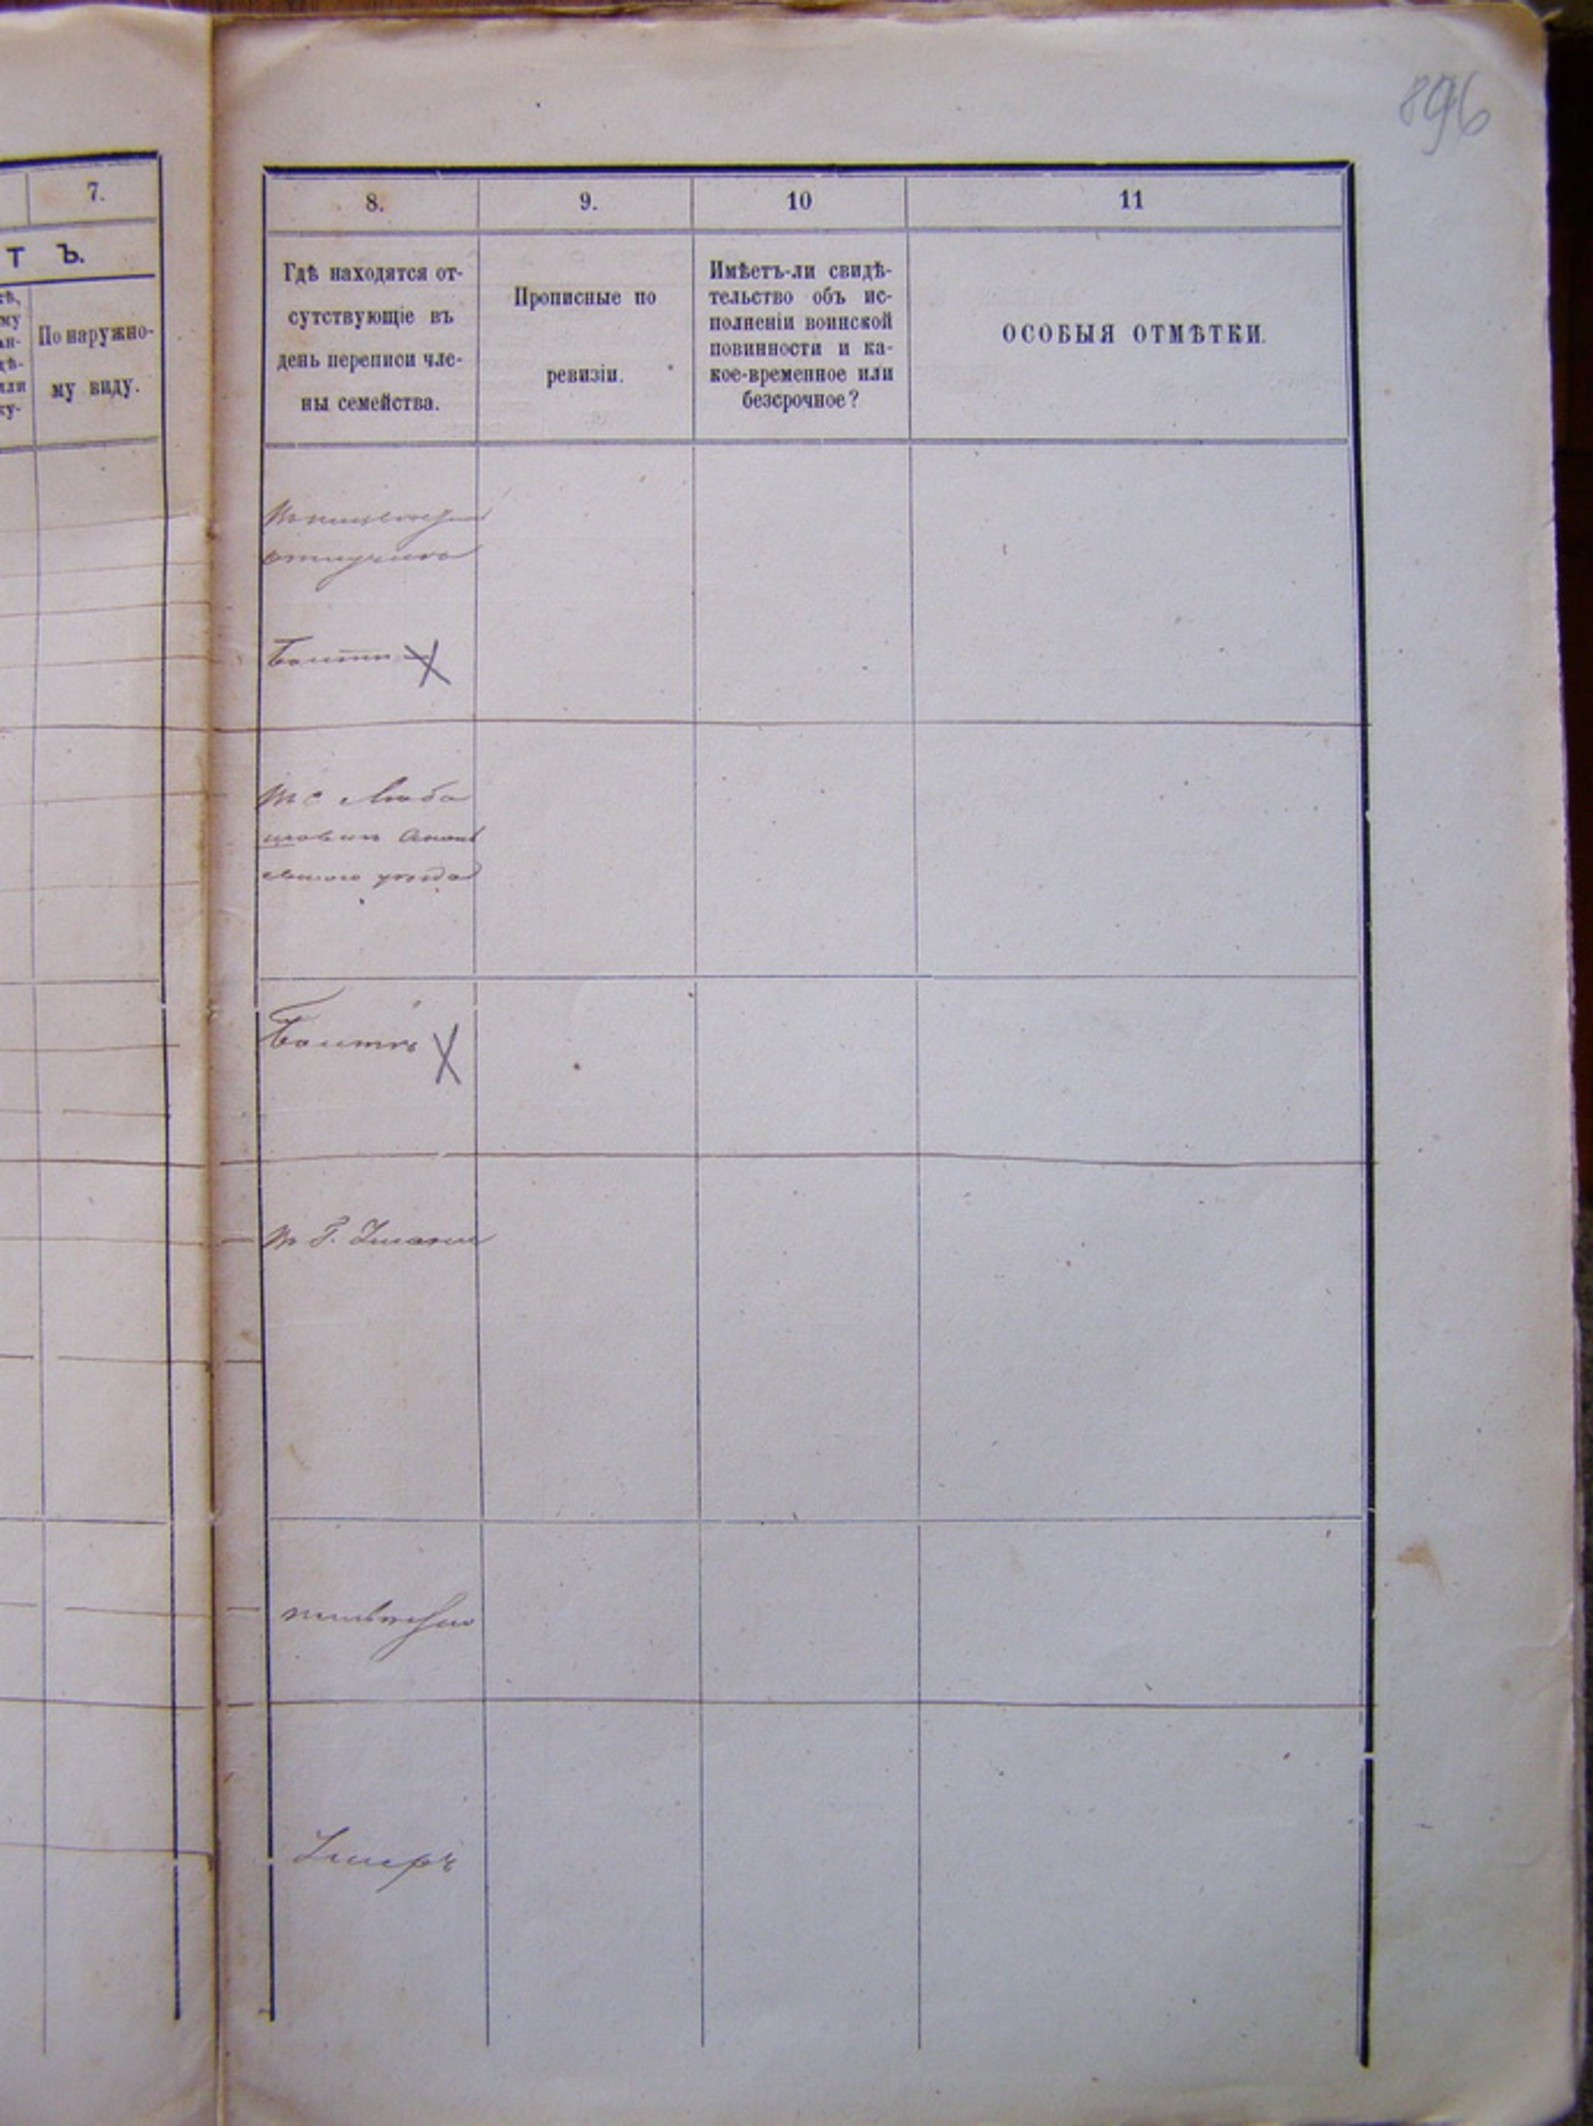 896
7.
Т Ъ.
По наружно-
му виду.
8.
9.
10
11
Гдѣ находятся от-
сутствующіе въ
день переписи чле-
ны семейства.
Прописные по
ревизіи.
Имѣетъ-ли свидѣ-
тельство объ ис-
полненіи воинской
повинности и ка-
кое-временное или
безсрочное?
ОСОБЫЯ ОТМѢТКИ.
Балтѣ X
Въ с Люба
шовкѣ Анань
евскаго уезда
Балтѣ X
въ Г. Измаиле
неизвестно
Умеръ